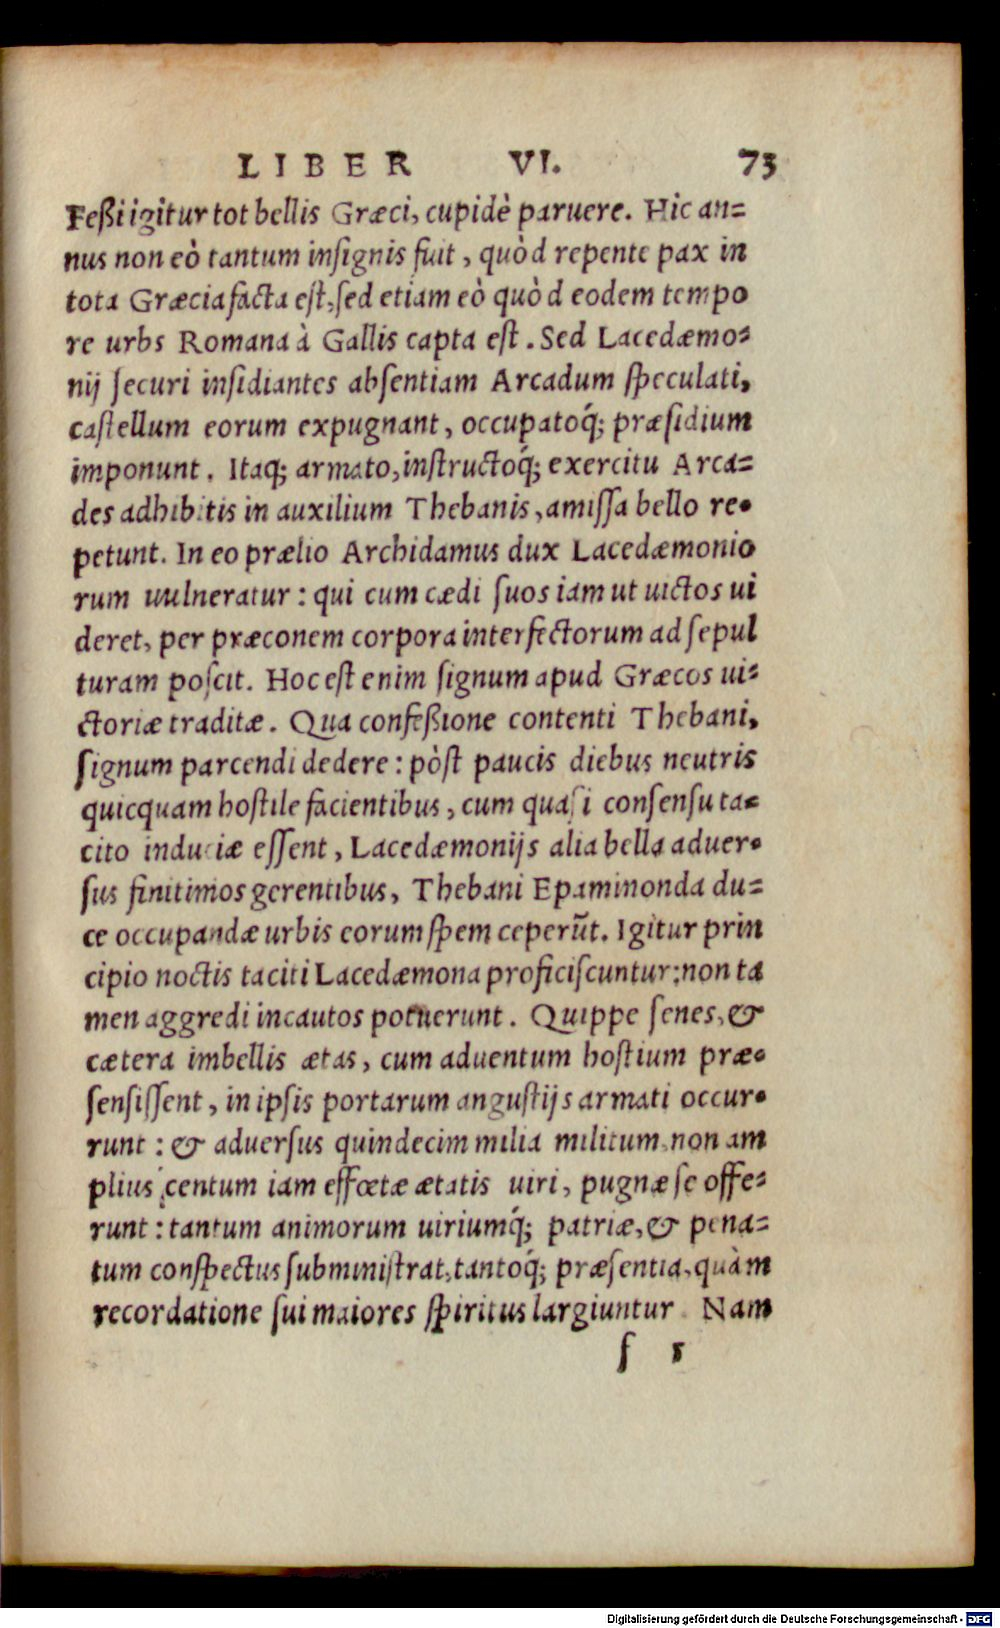 LIBER VI. 73
Feßi igitur tot bellis Græci, cupidè paruere. Hic an=
nus non eò tantum inſignis fuit, quòd repente pax in
tota Græcia facta eſt, ſed etiam eò quòd eodem tempo
re urbs Romana à Gallis capta eſt. Sed Lacedæmo=
nij ſecuri inſidiantes abſentiam Arcadum ſpeculati,
caſtellum eorum expugnant, occupatoq́; præſidium
imponunt. Itaq; armato, inſtructoq́; exercitu Arca=
des adhibitis in auxilium Thebanis, amiſſa bello re=
petunt. In eo prælio Archidamus dux Lacedæmonio
rum uulneratur: qui cum cædi ſuos iam ut uictos ui
deret, per præconem corpora interfectorum ad ſepul
turam poſcit. Hoc eſt enim ſignum apud Græcos ui=
ctoriæ traditæ. Qua confeßione contenti Thebani,
ſignum parcendi dedere: pòſt paucis diebus neutris
quicquam hoſtile facientibus, cum quaſi conſenſu ta=
cito induciæ eſſent, Lacedæmonijs alia bella aduer=
ſus finitimos gerentibus, Thebani Epaminonda du=
ce occupandæ urbis eorum ſpem ceperũt. Igitur prin
cipio noctis taciti Lacedæmona proficiſcuntur: non ta
men aggredi incautos potuerunt. Quippe ſenes, &
cætera imbellis ætas, cum aduentum hoſtium præ=
ſenſiſſent, in ipſis portarum anguſtijs armati occur=
runt: & aduerſus quindecim milia militum, non am
plius centum iam effœtæ ætatis uiri, pugnæ ſe offe=
runt: tantum animorum uiriumq́; patriæ, & pena=
tum conſpectus ſubminiſtrat, tantoq́; præſentia, quàm
recordatione ſui maiores ſpiritus largiuntur. Nam
ſ 1
Digitalisierung gefördert durch die Deutsche Forschungsgemeinschaft - DFG